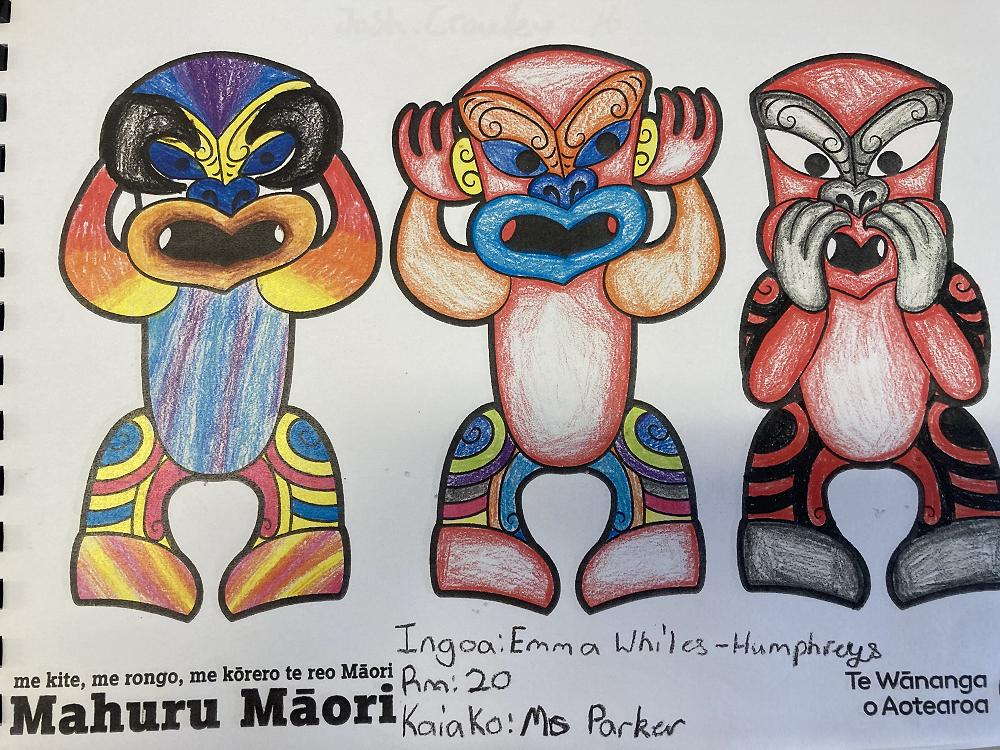 Josh Crowley 16
Ingoa: Emma Whiles-Humphreys
me kite, me rongo, me kōrero te reo Māori
Rm: 20
Mahuru Māori
Kaiako: Ms Parker
Te Wānanga
o Aotearoa